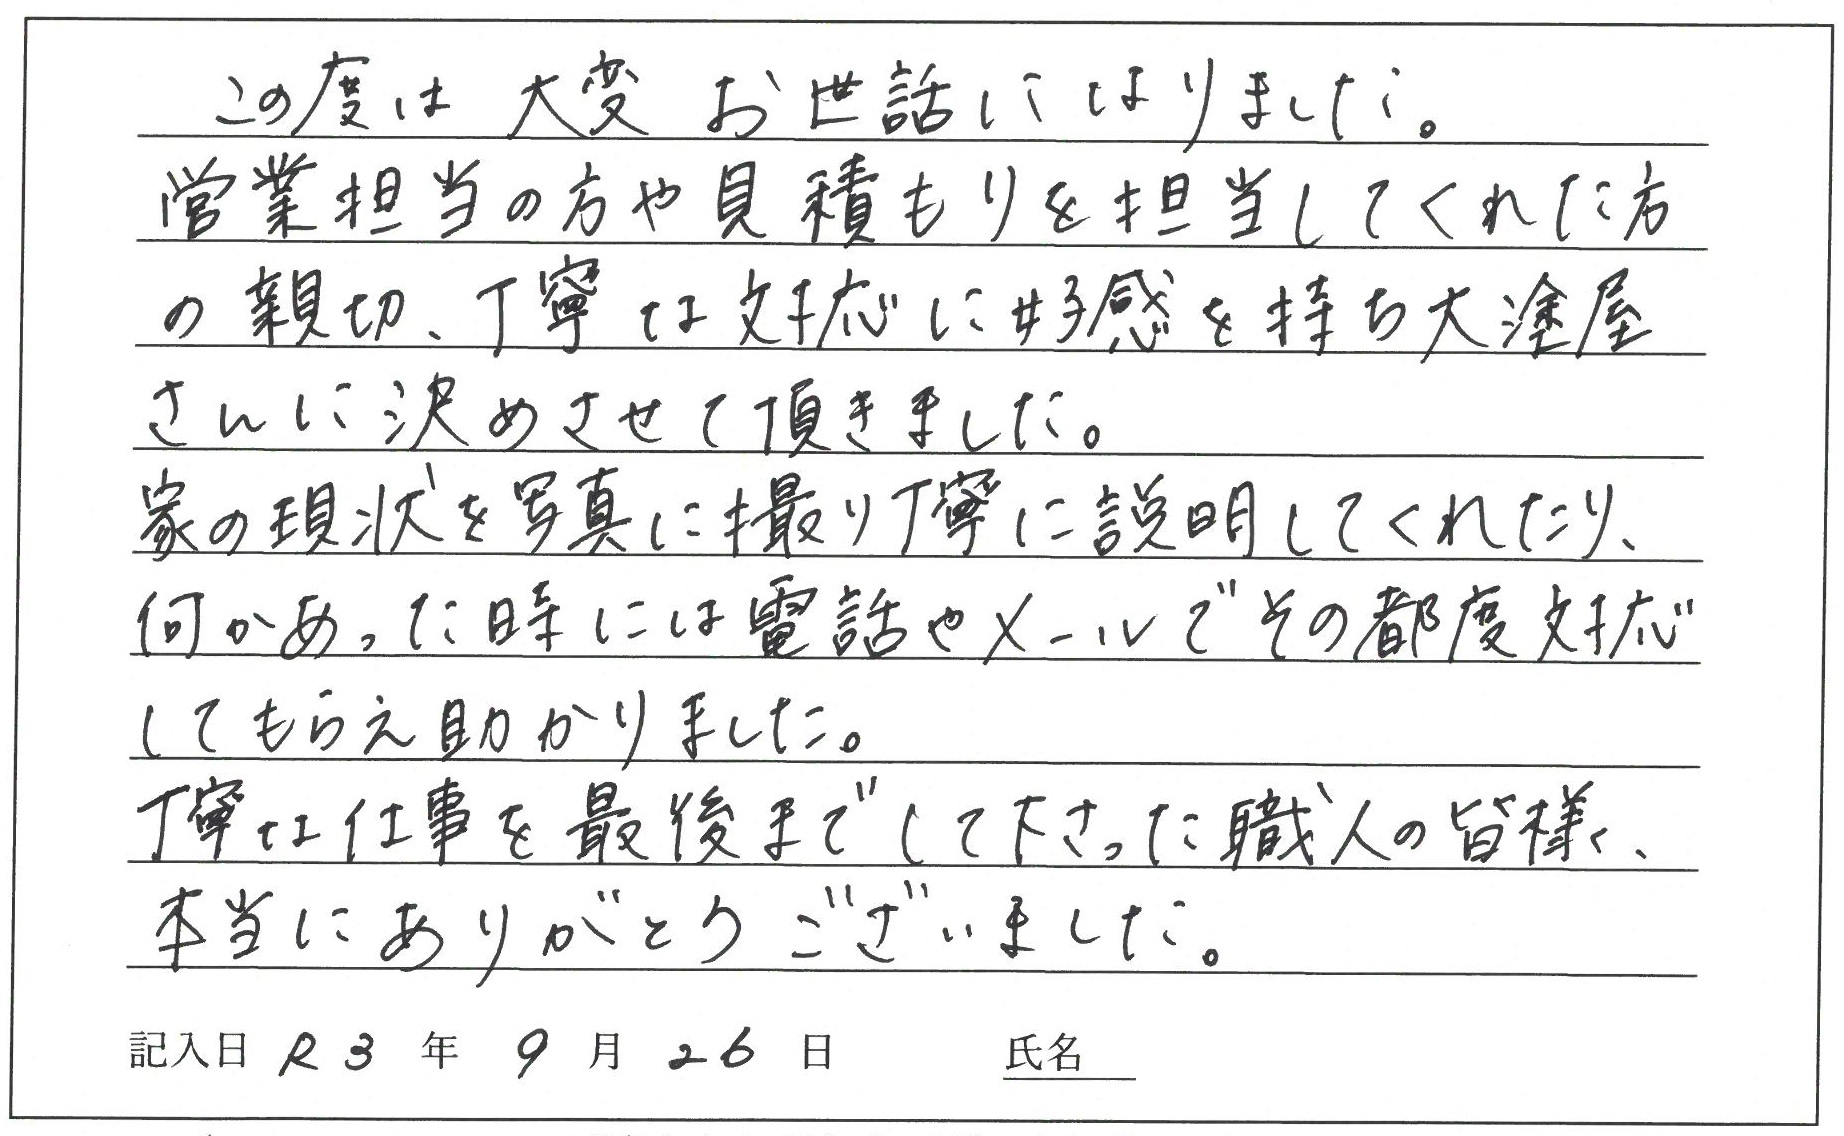 この度は大変お世話になりました。
営業担当の方や見積もりを担当してくれた方
の親切、丁寧な対応に好感を持ち大塗屋
さんに決めさせて頂きました。
家の現状を写真に撮り丁寧に説明してくれたり、
何かあった時には電話やメールでその都度対応
してもらえ助かりました。
丁寧な仕事を最後までして下さった職人の皆様、
本当にありがとうございました。
記入日 R3 年 9 月 26 日 氏名